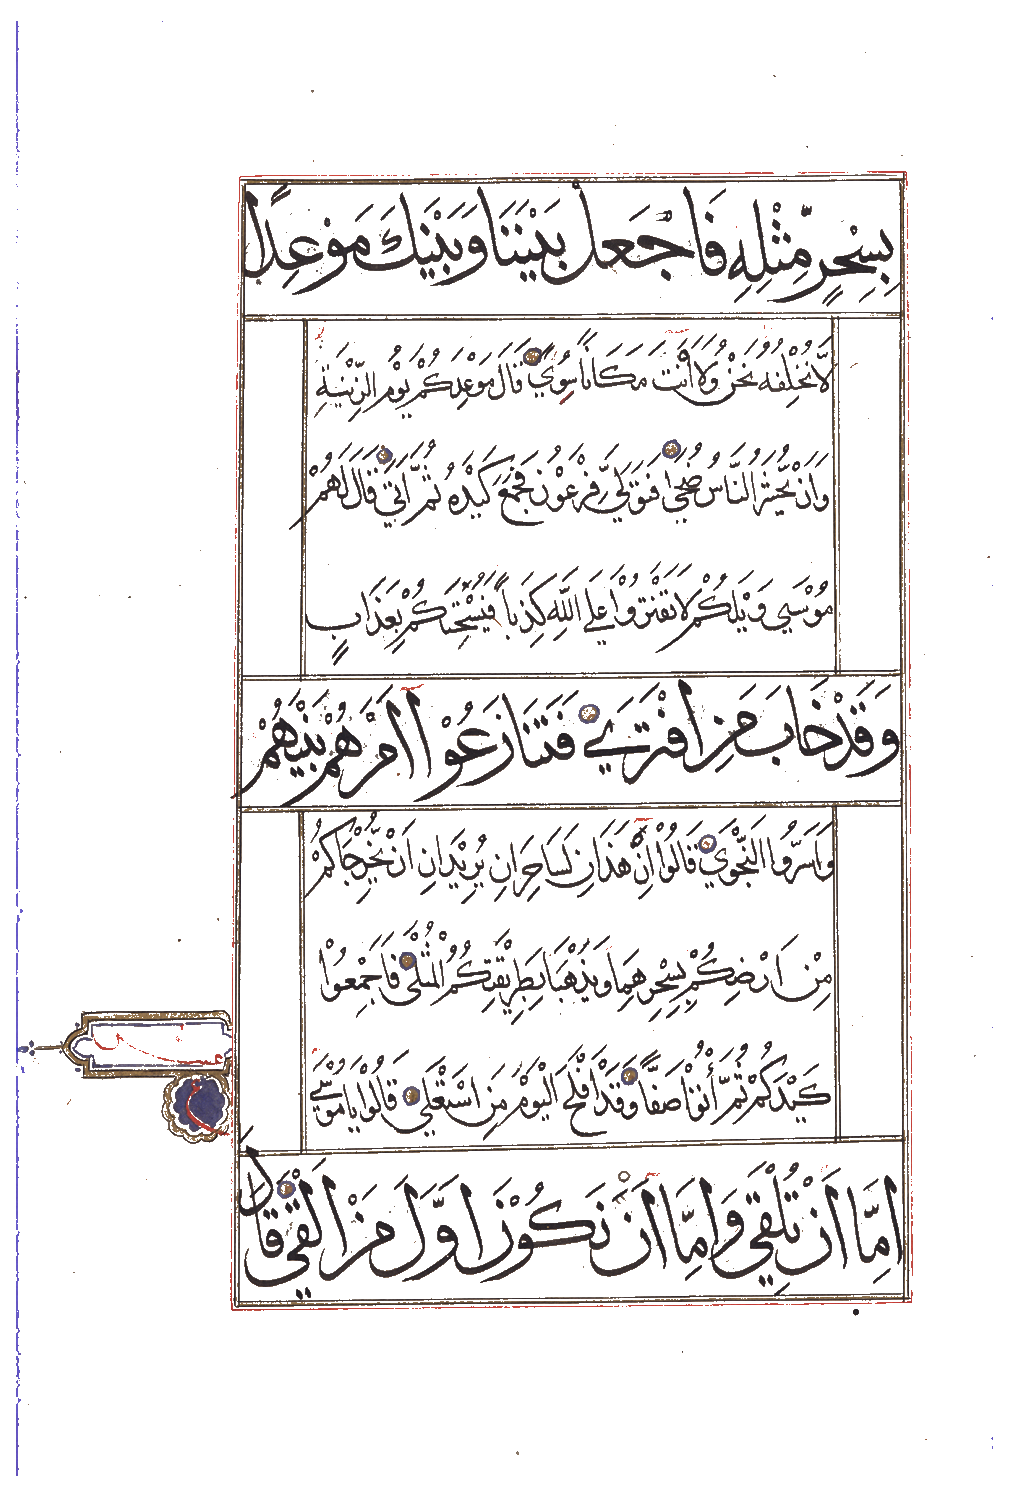 بِسِحْرٍ مِّثْلِهِ فَاجْعَلْ بَيْنَنَا وَبَيْنَكَ مَوْعِدًا
لَّا نُخْلِفُهُ نَحْنُ وَلَا أَنْتَ مَكَانًا سُوًى قَالَ مَوْعِدُكُمْ يَوْمُ الزِّينَةِ
وَأَنْ يُحْشَرَ النَّاسُ ضُحًى فَتَوَلَّى فِرْعَوْنُ فَجَمَعَ كَيْدَهُ ثُمَّ أَتَى قَالَ لَهُمْ
مُوسَى وَيْلَكُمْ لَا تَفْتَرُوا عَلَى اللَّهِ كَذِبًا فَيُسْحِتَكُمْ بِعَذَابٍ
وَقَدْ خَابَ مَنِ افْتَرَى فَتَنَازَعُوا أَمْرَهُمْ بَيْنَهُمْ
وَأَسَرُّوا النَّجْوَى قَالُوا إِنْ هَذَانِ لَسَاحِرَانِ يُرِيدَانِ أَنْ يُخْرِجَاكُمْ
مِنْ أَرْضِكُمْ بِسِحْرِهِمَا وَيَذْهَبَا بِطَرِيقَتِكُمُ الْمُثْلَى فَاجْمَعُوا
كَيْدَكُمْ ثُمَّ أْتُوا صَفًّا وَقَدْ أَفْلَحَ الْيَوْمَ مَنِ اسْتَعْلَى قَالُوا يَا مُوسَى
إِمَّا أَنْ تُلْقِيَ وَإِمَّا أَنْ نَكُونَ أَوَّلَ مَنْ أَلْقَى قَالَ